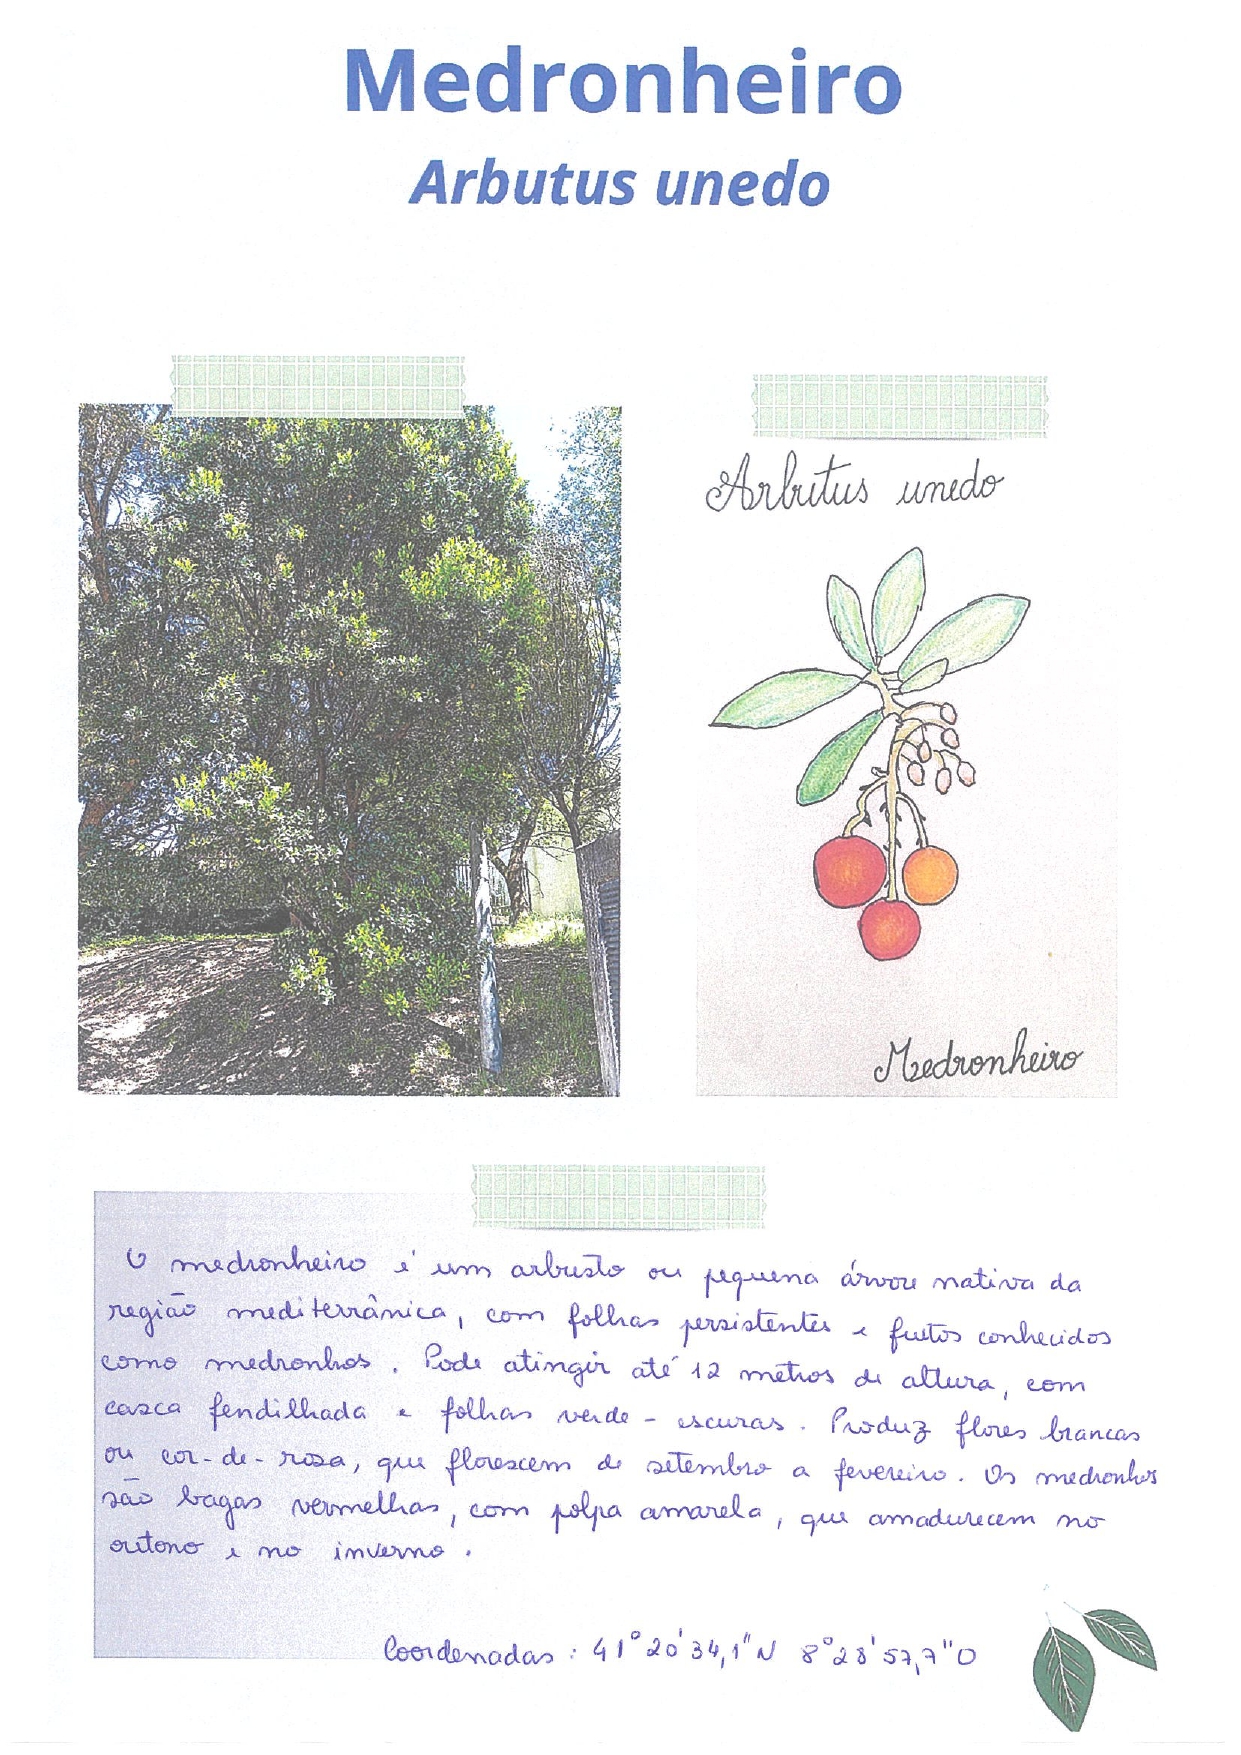 Medronheiro
Arbutus unedo
Arbutus unedo
Medronheiro
O medronheiro é um arbusto ou pequena árvore nativa da
região mediterrânica, com folhas persistentes e frutos conhecidos
como medronhos. Pode atingir até 12 metros de altura, com
casca fendilhada e folhas verde-escuras. Produz flores brancas
ou cor-de-rosa, que florescem de setembro a fevereiro. Os medronhos
são bagas vermelhas, com polpa amarela, que amadurecem no
outono e no inverno.
Coordenadas: 41°20'34,1"N 8°28'57,7"O